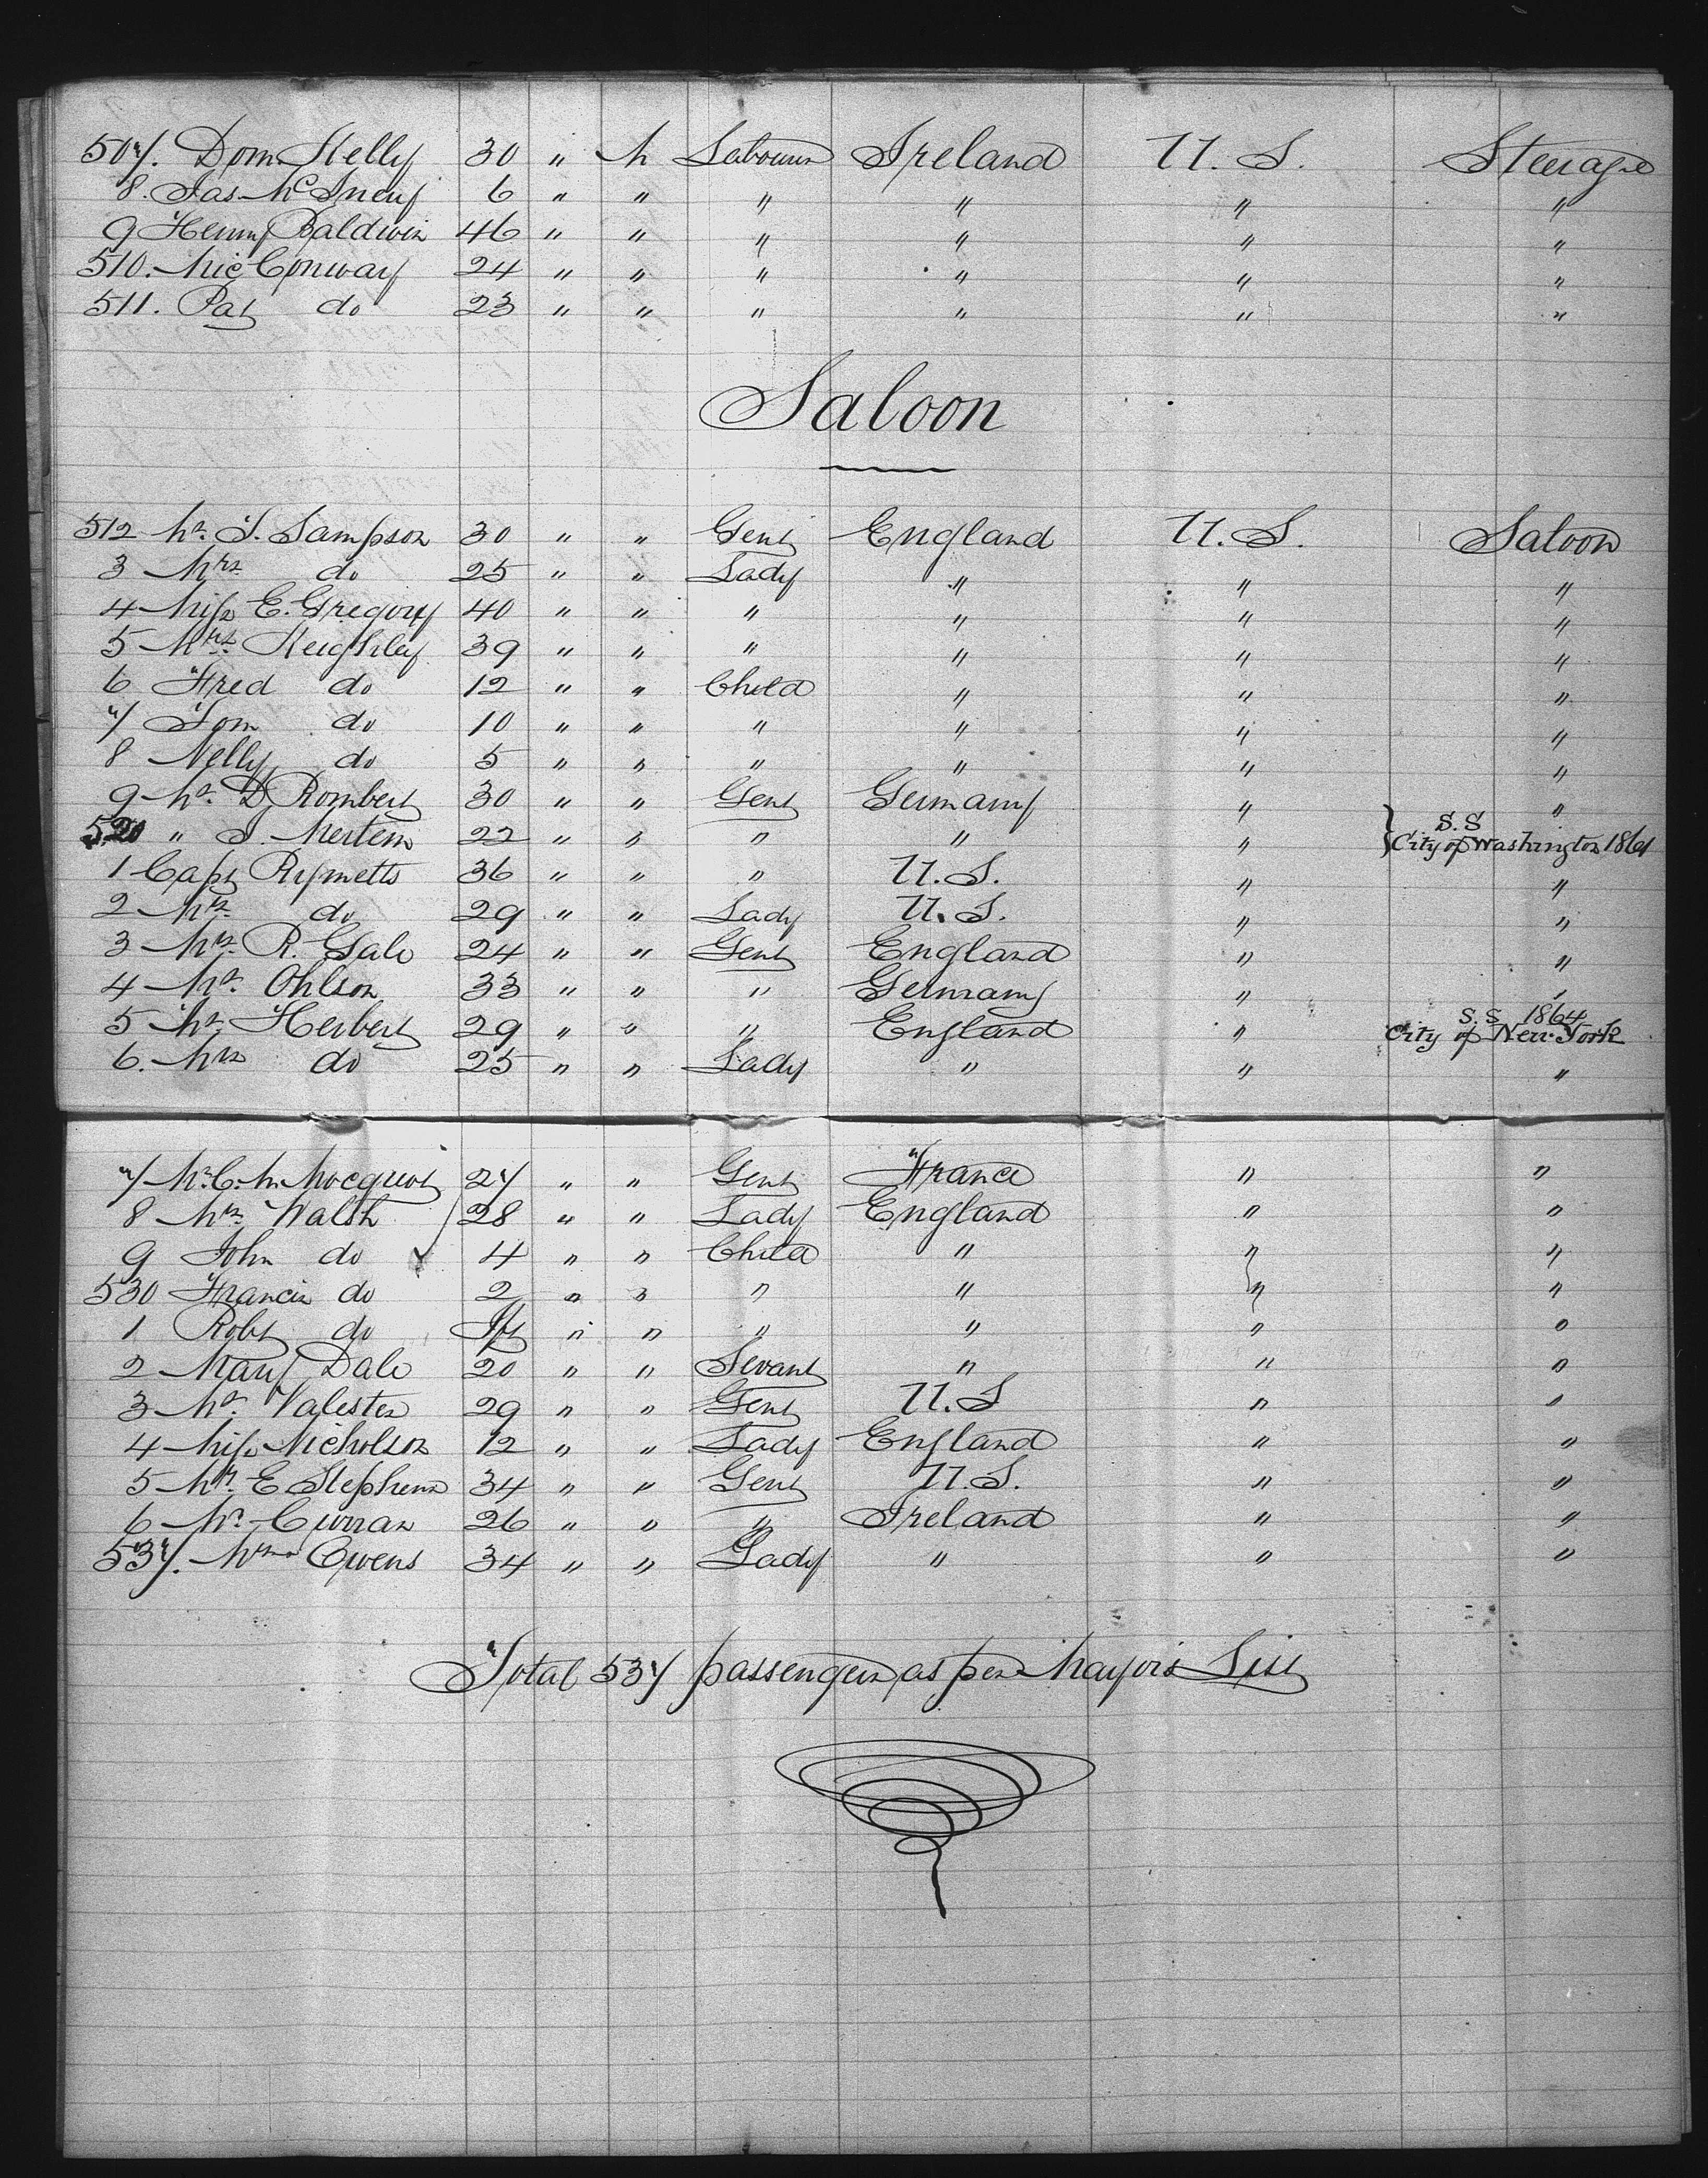 507. Dom Kelly 30 " M Labourer Ireland U.S. Steerage
8. Jas McInery 6 " " " " " "
9 Henry Baldwin 46 " " " " " "
510. Mic Conway 24 " " " " " "
511. Pat do 23 " " " " " "
Saloon
512 Mr. S. Sampson 30 " " Gent England U.S. Saloon
3 Mrs do 25 " " Lady " " "
4 Miss E. Gregory 40 " " " " " "
5 Mrs. Keighley 39 " " " " " "
6 Fred do 12 " " Child " " "
7 Tom do 10 " " " " " "
8 Nelly do 5 " " " " " "
9 Mr. D. Rombert 30 " " Gent Germany " "
S.S
520 " J. Mertens 22 " " " " " } City of Washington 1861
1 Capt Rymetts 36 " " " U.S. " "
2 Mrs. do 29 " " Lady U.S. " "
3 Mr. R. Gale 24 " " Gent England " "
4 Mr. Ohlson 33 " " " Germany " "
S.S. 1864
5 Mr. Herbert 29 " " " England " City of New York
6. Mrs do 25 " " Lady " " "
7 Mr. C. M. Mocquot 27 " " Gent France " "
8 Mrs. Walsh 28 " " Lady England " "
9 John do 4 " " Child " " "
530 Francis do 2 " " " " " "
1 Robt do Inft " " " " " "
2 Mary Dale 20 " " Servant " " "
3 Mr. Valester 29 " " Gent U.S " "
4 Miss Nicholson 12 " " Lady England " "
5 Mr. E Stephens 34 " " Gent U.S. " "
6 Mr. Curran 26 " " " Ireland " "
537. Mrs. Owens 34 " " Lady " " "
Total 537 passengers as per Mayors List